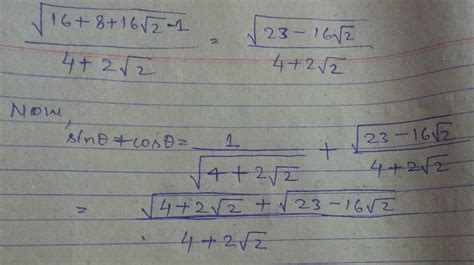 √(16+8+16√2-1) / (4+2√2) = √(23-16√2) / (4+2√2)
Now,
sinθ+cosθ = 1 / √(4+2√2) + √(23-16√2) / (4+2√2)
= (√(4+2√2) + √(23-16√2)) / (4+2√2)